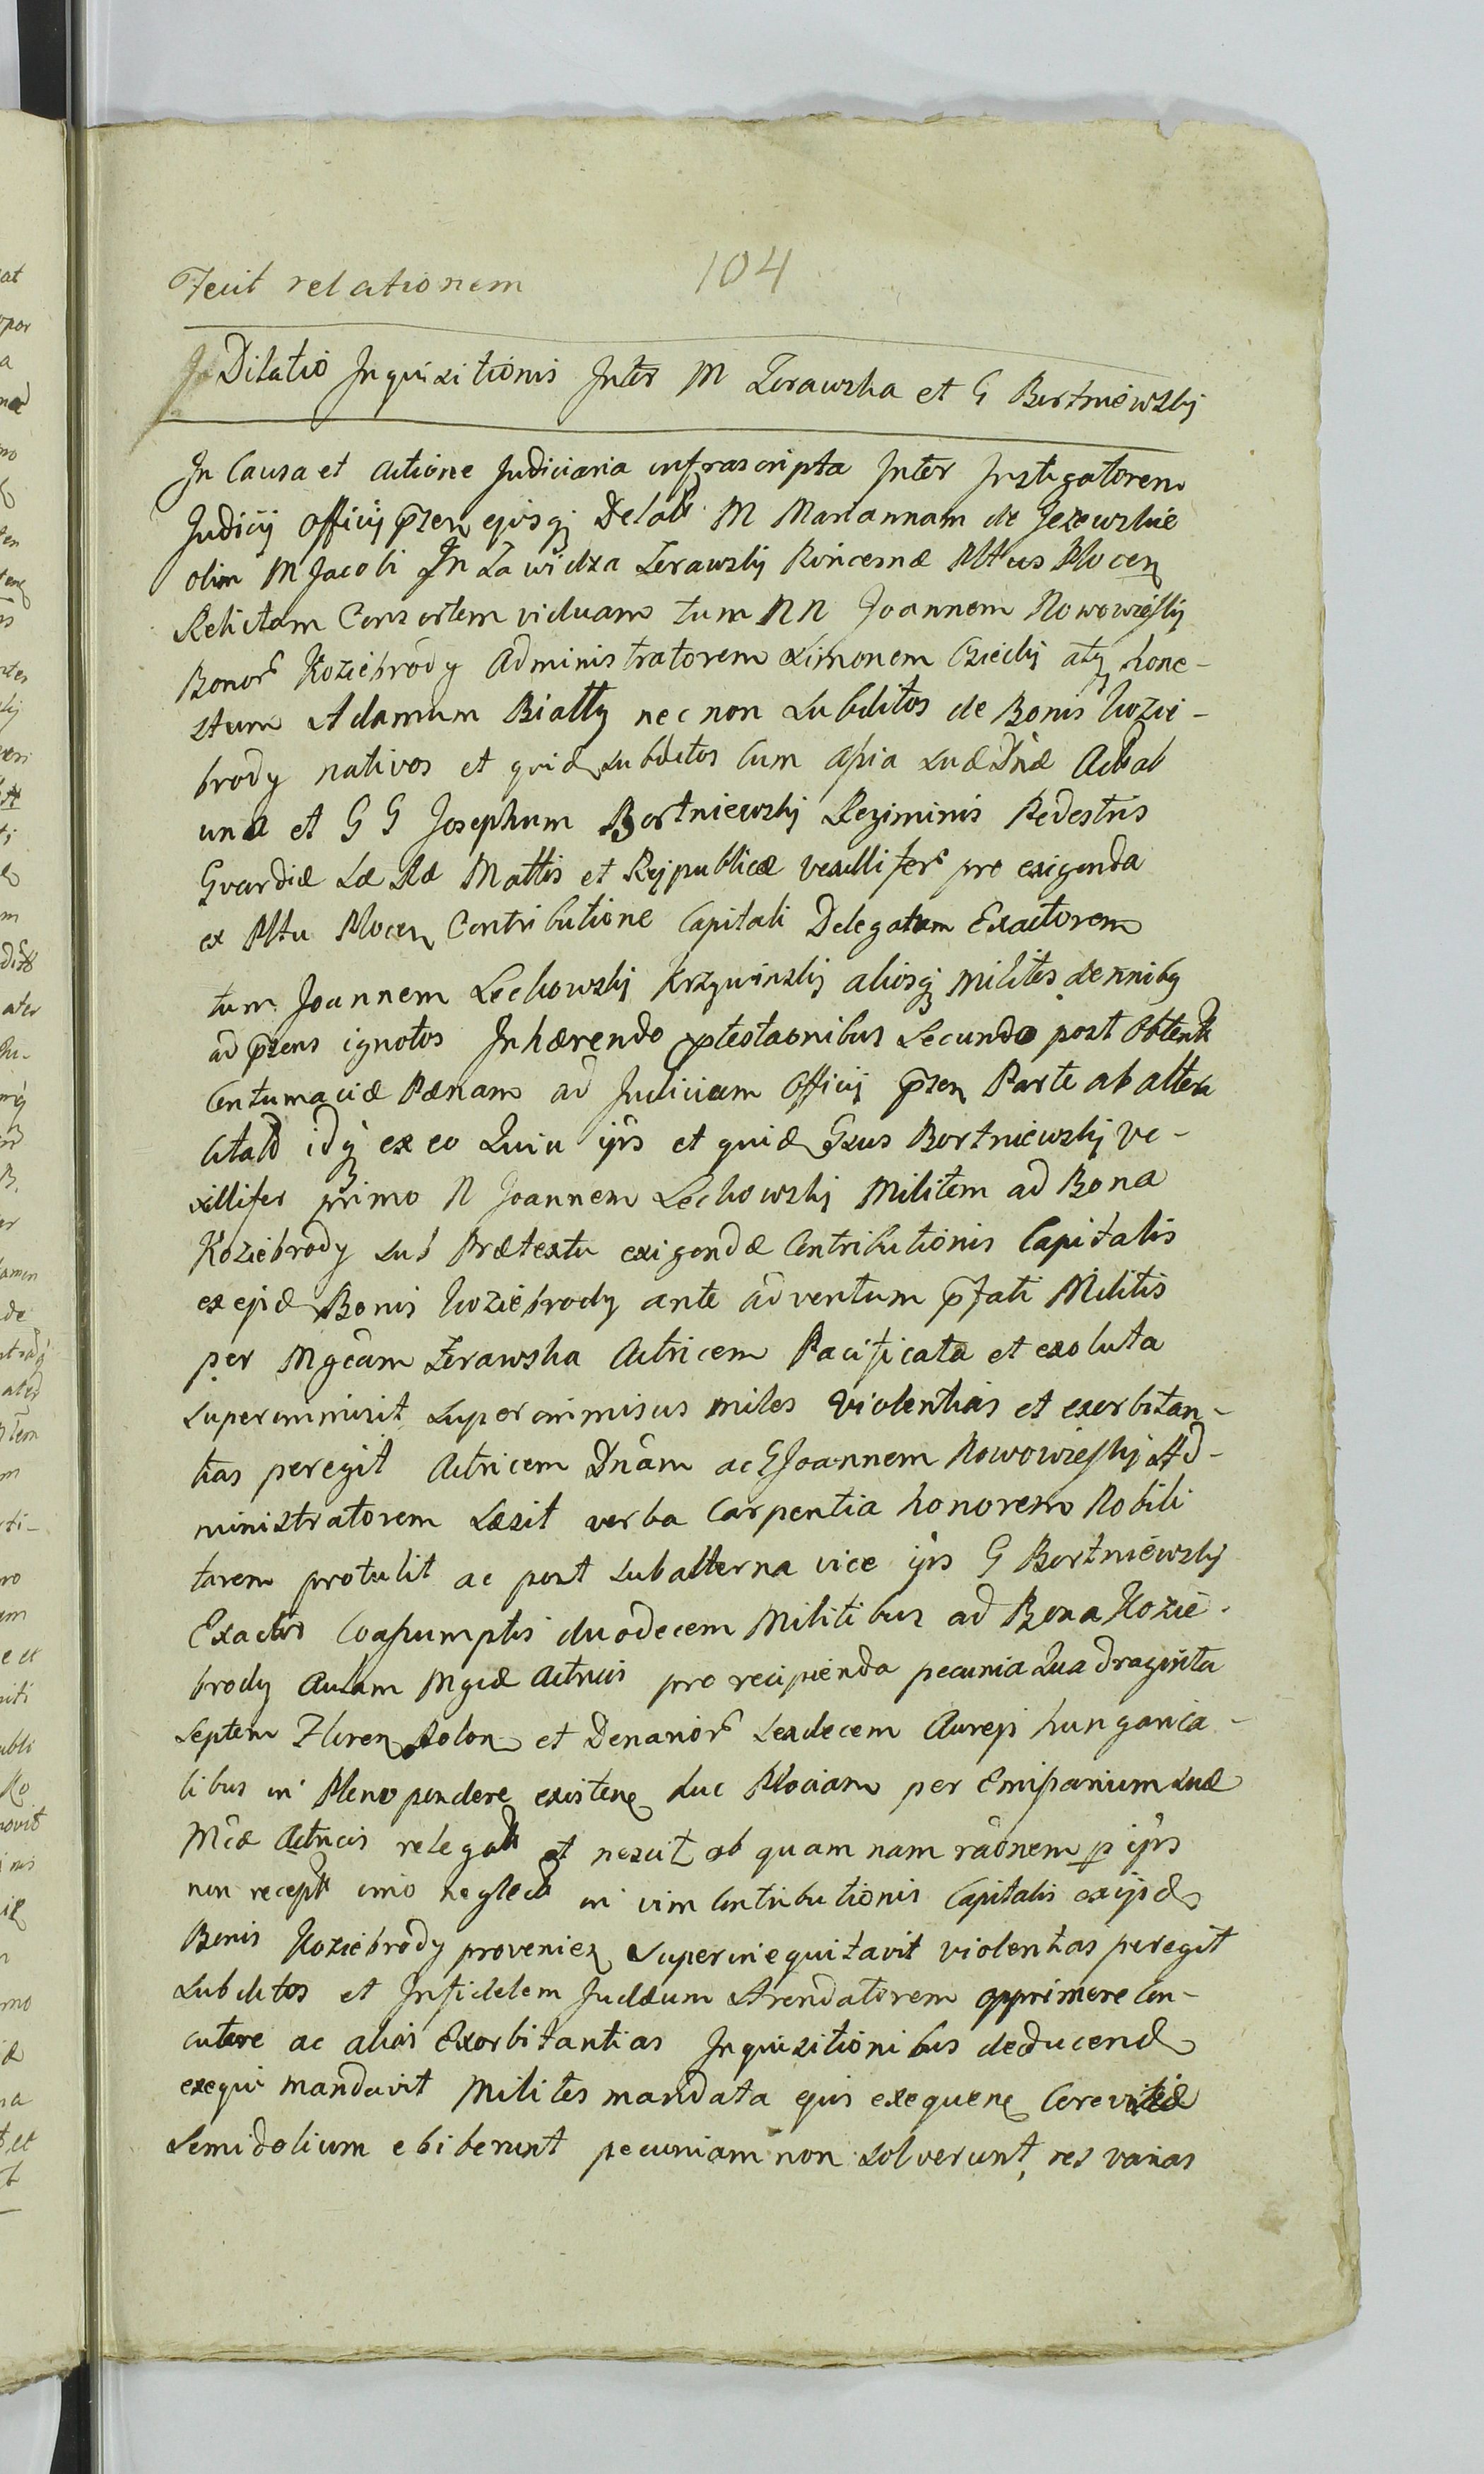 Fecit relationem
104
Dilatio Inquisitionis Inter M Zerawska et G Bortniewsky
In Causa et actione Judiciaria infrascripta Inter Instigatorem
Judicij Officij p̄sen ejusq Delatt M Mariannam de Jezewskie
olim M Jacobi In Zawidza Zerawsky Pincernæ Pltus Plocen
Relictam Consortem viduam tum NN Joannem Nowowieysky
Bonor Koziebrody Administratorem Simonem atq hone-
stum Adamum Biatty nec non Subditos de Bonis Kozie-
brody nativos et quid Subditos Cum Assia Suæ Dnæ
una et G G Josephum Bortniewsky Regiminis Pedestris
Gvardiæ Sæ Ræ Mattis et Rejpublicæ vexillifer pro exigenda
ex Pltu Plocen Contributione Capitali Delegatum Exactorem
tum Joannem Lechowsky Krzywinsky aliosq milites de nnibq
ad p̄sens ignotos Inhærendo ptestaonibus Secundo post Obtent
Contumaciæ Pænam ad Judicium Officij p̄sen Parte ab altera
Citatd idq ex eo Quia ijrs et quid Gsus Bortniewsky Ve-
xillifer primo N Joannem Lechowsky Militem ad Bona
Koziebrody Sub Prætextu exigendæ Contributionis Capitalis
ex ejsd Bonis Koziebrody ante adventum p̄fati Militis
per Mgcam Zerawska Actricem Pacificata et exoluta
Superimmisit Superimmisus miles violentias et exorbitan-
tias peregit Actricem Dnam ac G Joannem Nowowieysky Ad-
ministratorem Læsit verba Carpentia honorem Nobili
tarem protulit ac post Subalterna vice ijrs G Bortniewsky
Exactor Coassumptis duodecem Militibus ad Bona Kozie-
brody Aulam Mgcæ Actricis pro recipienda pecunia Quadraginta
Septem Floren Polon et Denarior Sexdecem Aureis hungarica-
libus in Pleno pondere existen huc Plociam per Emissarium Suæ
Mcæ Actricis relegatt et nescit ob quam nam raonem p ijrs
non recept imo neglect in vim Contributionis Capitalis ex ijsd
Bonis Koziebrody provenien Superinequitavit violentias peregit
Subditos et Infidelem Judæum Arendatorem opprimere Con-
cutere ac alias Exorbitantias Inquisitionibus deducend
exequi mandavit Milites mandata ejus exequen Cerevisiæ
Semidolium ebiberunt pecuniam non Solverunt, res varias